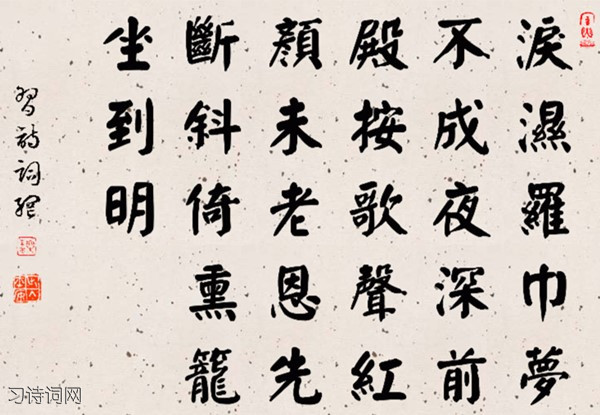 淚濕羅巾夢
不成夜深前
殿按歌聲紅
顏未老恩先
斷斜倚熏籠
坐到明
習詩詞網
习诗词网